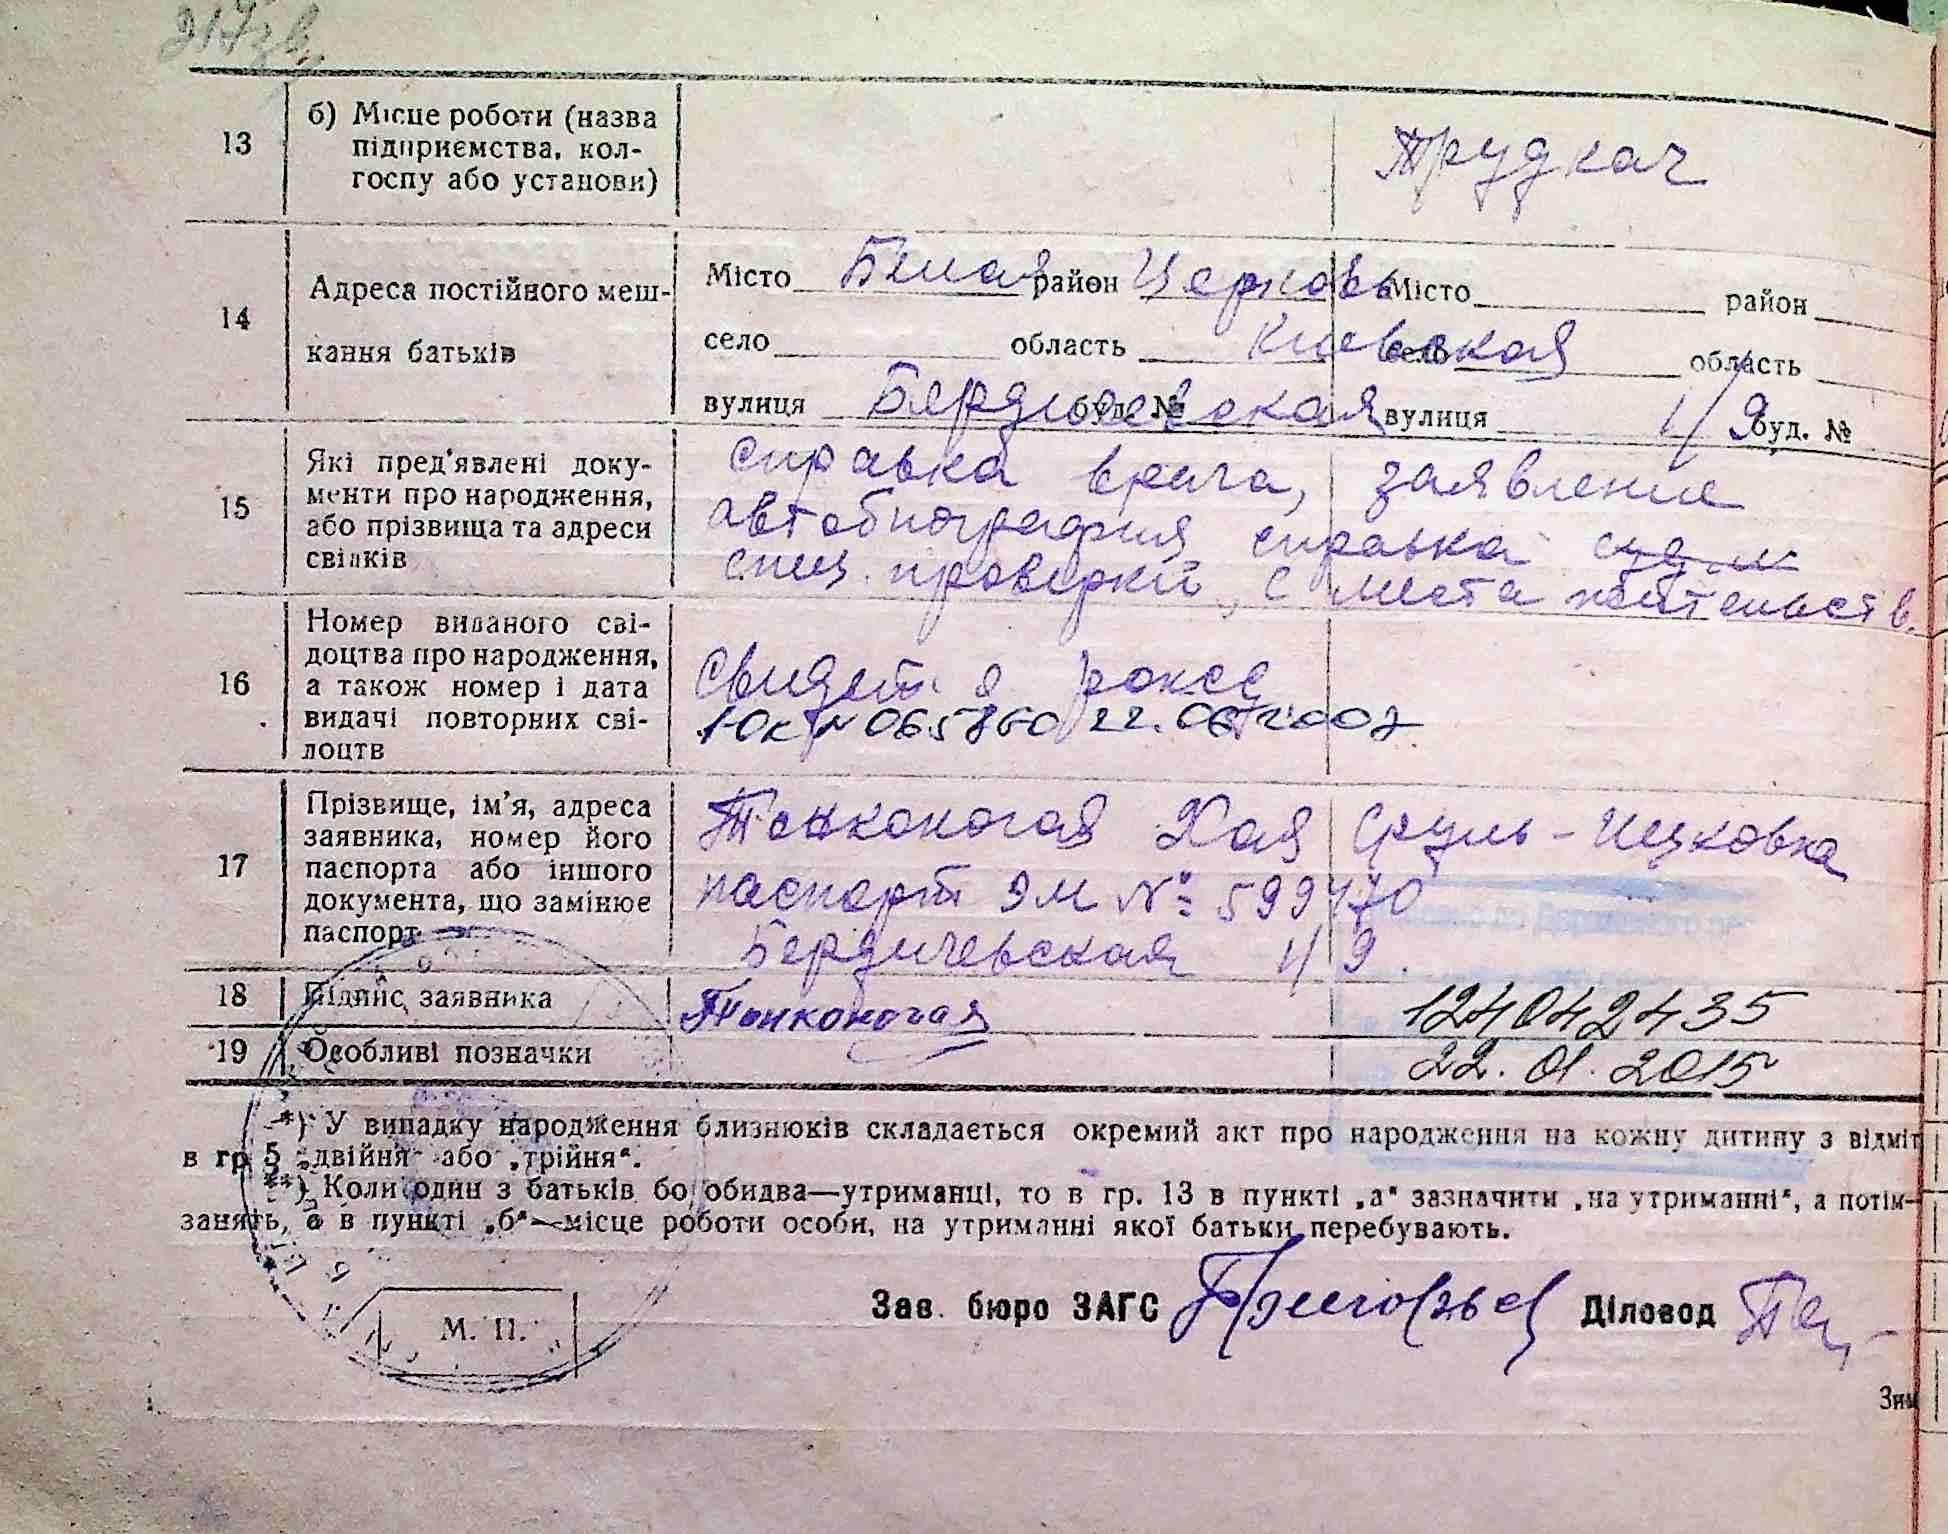 217зв.
13
б) Місце роботи (назва
підприємства, кол-
госпу або установи)
14
Адреса постійного меш-
кання батьків
Місто Белая район Церковь Місто район
село область Киевская село область
вулиця Бердичевская буд. № вулиця 1/9 буд. №
15
Які пред'явлені доку-
менти про народження,
або прізвища та адреси
свідків
справка врача, заявление
автобиография справка
спец. проверки, с места жительств.
16
Номер виданого сві-
доцтва про народження,
а також номер і дата
видачі повторних сві-
доцтв
Свидет. я
№ 065860 22.06.2007
17
Прізвище, ім'я, адреса
заявника, номер його
паспорта або іншого
документа, що замінює
паспорт
Тонконогая Хая Сруль-Ицковна
паспорт ЭМ № 599470
Бердичевская 1/9.
18
Підпис заявника
Тонконогая
124042435
19
Особливі позначки
22.01.2015
*) У випадку народження близнюків складається окремий акт про народження на кожну дитину з відміт
в гр 5 „двійня" або „трійня".
**) Коли один з батьків бо обидва—утриманці, то в гр. 13 в пункті „а" зазначити „на утриманні", а потім—
занять, а в пункті „б"—місце роботи особи, на утриманні якої батьки перебувають.
Зав. бюро ЗАГС Діловод
М. П.
Зим